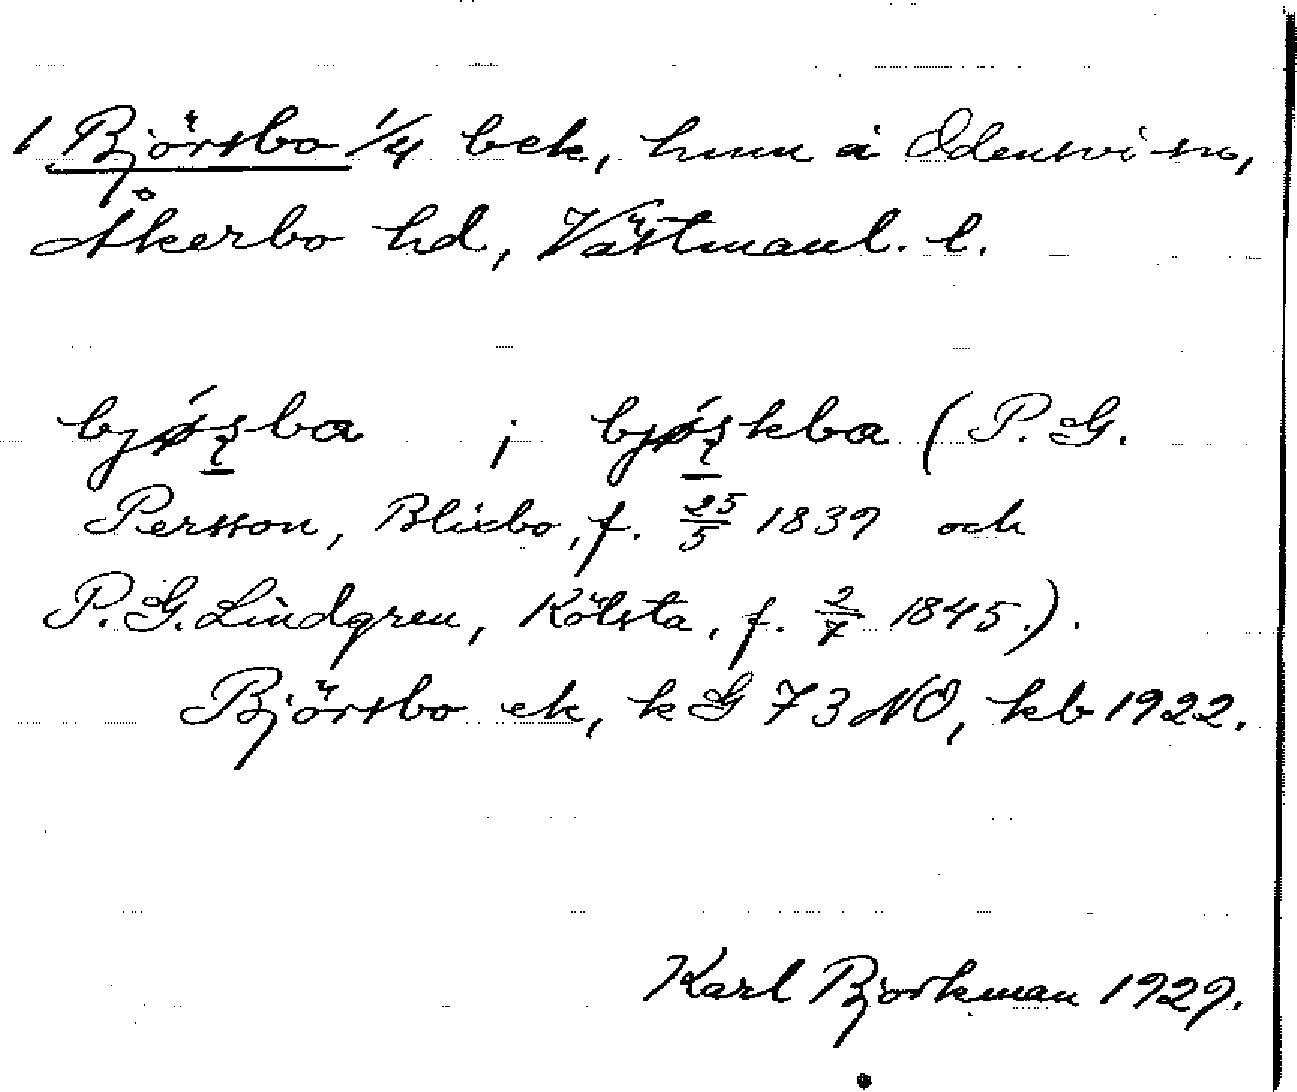 1 Björsbo 1/4 bek, hmn å Odensvi sn,
Åkerbo hd, Västmanl. l.
bjǿʂba ; bjǿʂkba (P. G.
Persson, Blixbo, f. 25/5 1839 och
P. G. Lindgren, Kölsta, f. 2/7 1845.).
Björsbo ek, k G 73 NO, kb 1922.
Karl Björkman 1929.